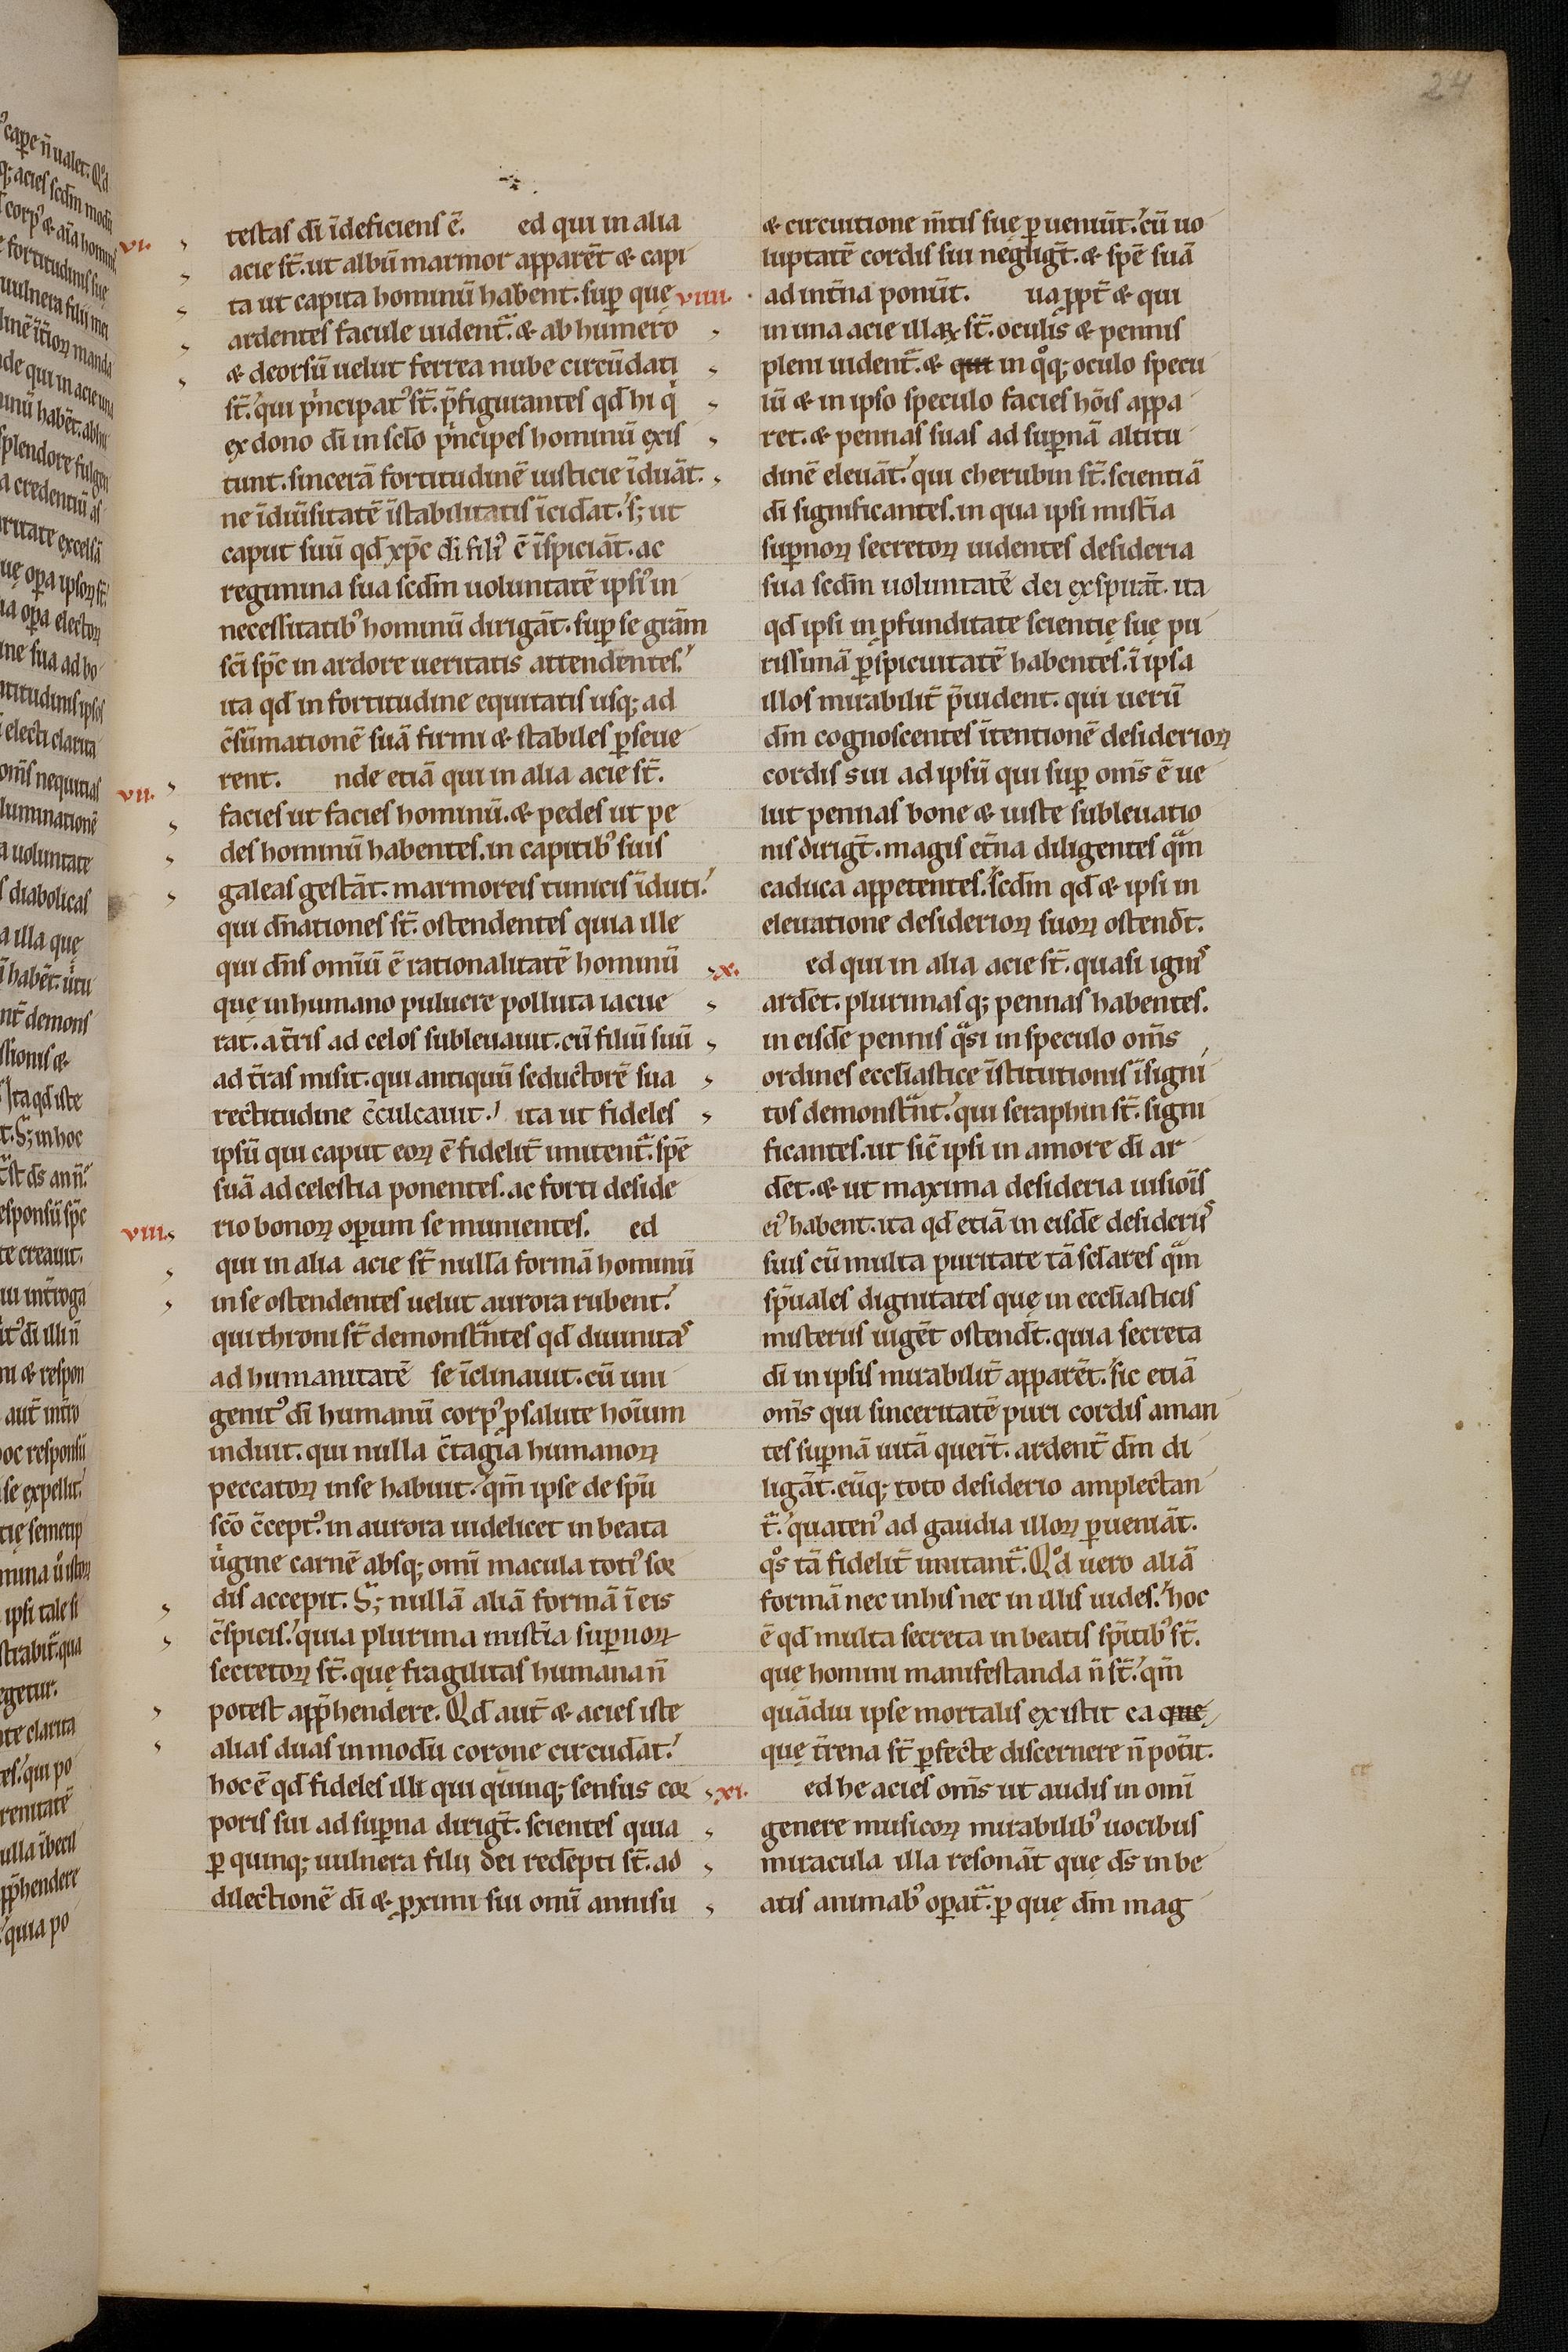 24
vi.
testas dī īdeficienſ ē. ed qui in alia
acie ſt̄. ut albū marmor apparēt & capi
ta ut capita hominū habent. ſuꝑ quę
ardenteſ facule uident᷑. & ab humero
& deorſū uelut ferrea nube circūdati
ſt̄. qui pͥncipatꝰ ſt̄. p̄figuranteſ qđ hi qͥ
ex dono dī in ſclo pͥncipeſ hominū exiſ
tunt. ſincerā fortitudinē iuſticie īduāt.
ne īdiūſitatē īſtabilitatiſ īcidāt. ſꝫ ut
caput ſuū qđ xp̄c dī filiꝰ ē īſpiciāt. ac
regimina ſua ſcđm uoluntatē ipſiꝰ in
neceſſitatibꝰ hominū dirigāt. ſuꝑ ſe grām
ſcī ſpc̄ in ardore ueritatis attendenteſ.
ita qđ in fortitudine equitatiſ uſqꝫ ad
c̄ſūmationē ſuā firmi & ſtabileſ ꝑſeue
vii.
rent. nde etiā qui in alia acie ſt̄.
facieſ ut facieſ hominū. & pedeſ ut pe
deſ hominū habenteſ. in capitibꝰ ſuiſ
galeaſ geſtāt. marmoreiſ tuniciſ īduti.
qui dn̄ationeſ ſt̄. oſtendenteſ quia ille
qui dn̄ſ omīū ē rationalitatē hominū
quę in humano puluere polluta iacue
rat. a t̄riſ ad celoſ ſubleuauit. cū filiū ſuū
ad t̄raſ miſit. qui antiquū ſeductorē ſua
rectitudine c̄culcauit. ita ut fideleſ
ipſū qui caput eoꝝ ē fidelit̄ imitent᷑. ſpē
ſuā ad celeſtia ponenteſ. ac forti deſide
viii.
rio bonoꝝ oꝑum ſe munienteſ. ed
qui in alia acie ſt̄ nullā formā hominū
in ſe oſtendenteſ uelut aurora rubent.
qui throni ſt̄ demonſtᷓnteſ qđ diuinitaſ
ad humanitatē ſe īclinauit. cū uni
genitꝰ dī humanū corpꝰ ꝓ ſalute hoīum
induit. qui nulla c̄tagia humanoꝝ
peccatoꝝ in ſe habuit. qm̄ ipſe de ſpū
ſcō c̄ceptꝰ. in aurora uidelicet in beata
uͥgine carnē abſqꝫ omī macula totiꝰ ſor
diſ accepit. Sꝫ nullā aliā formā ī eiſ
c̄ſpiciſ. quia plurima miſtīa ſuꝑnoꝝ
ſecretoꝝ ſt̄. quę fragilitaſ humana n̄
poteſt app̄hendere. Qđ aut̄ & acieſ iſte
aliaſ duaſ in modū corone circūdāt.
hoc ē qđ fideleſ illi qui quinqꝫ ſenſuſ cor
poriſ ſui ad ſuꝑna dirigt̄. ſcienteſ quia
ꝑ quinqꝫ uulnera filij dei redēpti ſt̄. ad
dilectionē dī & ꝓximi ſui omī anniſu
& circuitione m̄tiſ ſuę ꝑueniūt. cū uo
luptatē cordiſ ſui negligt̄. & ſpē ſuā
viiii.
ad int̄na ponūt. uaꝓpt̄ & qui
in una acie illaꝝ ſt̄. oculiſ & penniſ
pleni uident᷑. & qui in qͦqꝫ oculo ſpecu
lū & in ipſo ſpeculo facieſ hōiſ appa
ret. & pennaſ ſuaſ ad ſuꝑnā altitu
dinē eleuāt. qui cherubin ſt̄. ſcientiā
dī ſignificanteſ. in qua ipſi miſtīa
ſuꝑnoꝝ ſecretoꝝ uidenteſ deſideria
ſua ſcđm uoluntatē dei exſpirāt. ita
qđ ipſi in ꝓfunditate ſcientię ſuę pu
riſſimā ꝑſpicuitatē habenteſ. ī ipſa
illoſ mirabilit̄ p̄uident. qui uerū
dm̄ cognoſcenteſ ītentionē deſiderioꝝ
cordiſ sui ad ipſū qui ſuꝑ om̄ſ ē ue
lut pennaſ bone & iuſte ſubleuatio
niſ dirigt̄. magiſ et̄na diligenteſ qᷓm
caduca appetenteſ. ſcđm qđ & ipſi in
eleuatione deſiderioꝝ ſuoꝝ oſtendt̄.
x.
ed qui in alia acie ſt̄. quaſi igniſ
ardēt. plurimaſqꝫ pennaſ habenteſ.
in eiſdē penniſ qᷓſi in ſpeculo om̄ſ
ordineſ eccliaſtice īſtitutioniſ īſigni
toſ demonſtᷓnt. qui ſeraphin ſt̄. ſigni
ficanteſ. ut ſic̄ ipſi in amore dī ar
dēt. & ut maxima deſideria uiſiōiſ
eiꝰ habent. ita qđ etiā in eiſdē deſideriiſ
ſuiſ cū multa puritate tā ſclareſ qᷓm
ſp̄ualeſ dignitateſ quę in eccliaſticiſ
miſteriiſ uigēt oſtendt̄. quia ſecreta
dī in ipſiſ mirabilit̄ apparēt. ſic etiā
om̄ſ qui ſinceritatē puri cordiſ aman
teſ ſuꝑnā uitā quert̄. ardent̄ dm̄ di
ligāt. eūqꝫ toto deſiderio amplectan
t᷑. quatenꝰ ad gaudia illoꝝ ꝑueniāt.
qͦſ tā fidelit̄ imitant᷑. Qͦd uero aliā
formā nec in hiſ nec in illiſ uideſ. hoc
ē qđ multa ſecreta in beatiſ ſpītibꝰ ſt̄.
quę homini manifeſtanda n̄ ſt̄. qm̄
quādiu ipſe mortaliſ exiſtit ea que
quę t̄rena ſt̄ ꝑfecte diſcernere n̄ pot̄it.
xi.
ed he acieſ om̄ſ ut audiſ in omī
genere muſicoꝝ mirabilibꝰ uocibuſ
miracula illa reſonāt quę dſ̄ in be
atiſ animabꝰ oꝑat᷑. ꝑ quę dm̄ mag